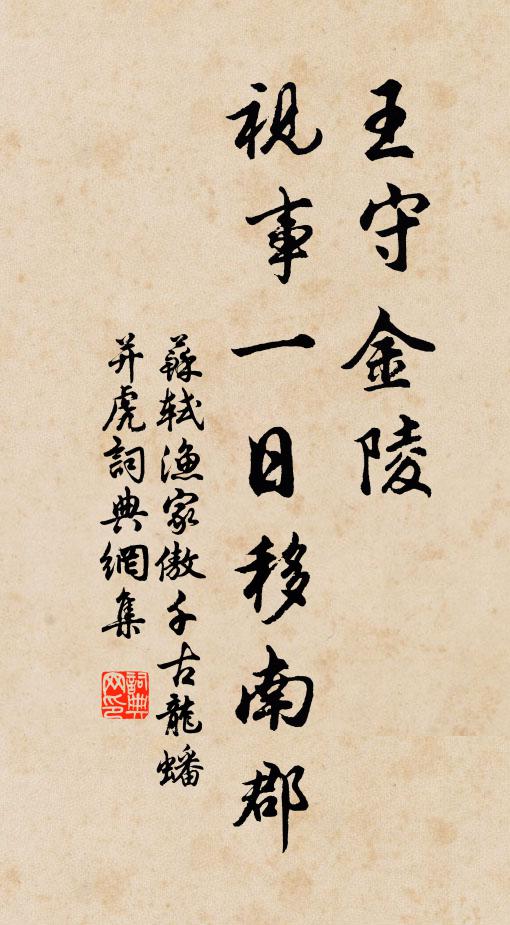 王守金陵
視事一日移南郡
蘇軾漁家傲千古龍蟠
并虎詞典網集
詞典
网印